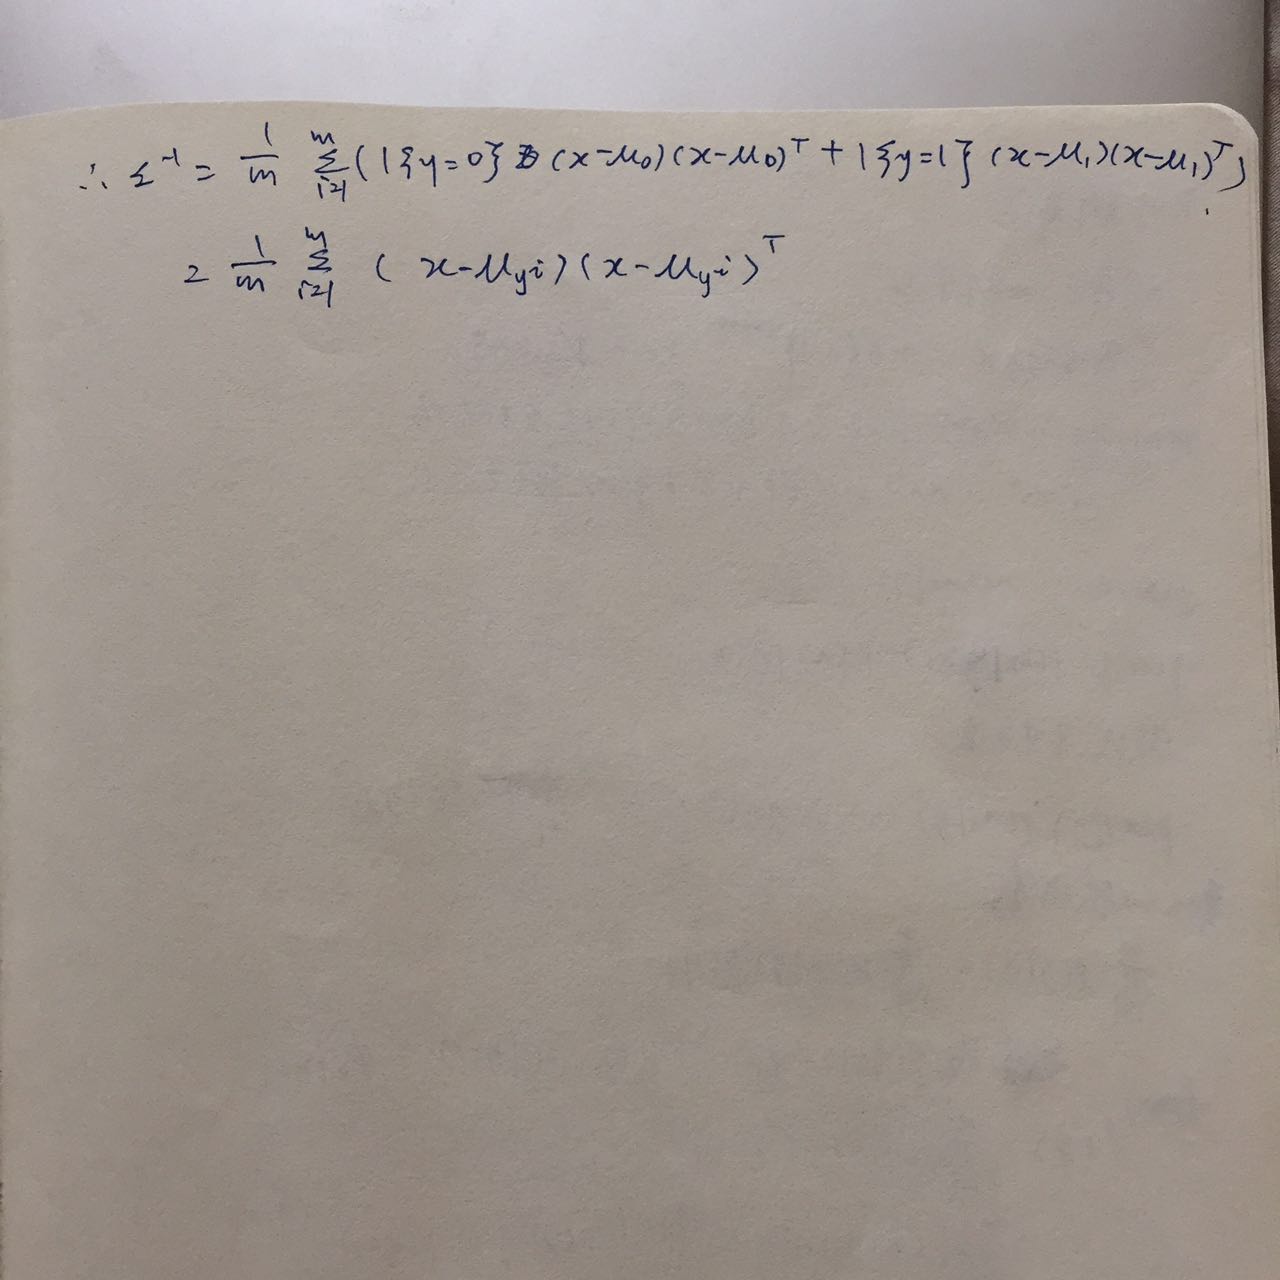 ∴ Σ⁻¹ = 1/m Σᵢ₌₁ᵐ (1{y=0} (x-μ₀)(x-μ₀)ᵀ + 1{y=1} (x-μ₁)(x-μ₁)ᵀ)
= 1/m Σᵢ₌₁ᵐ (x-μyi)(x-μyi)ᵀ